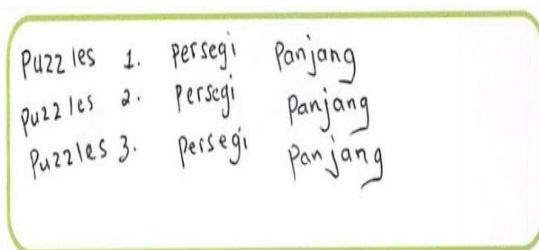 Puzzles 1. Persegi Panjang
Puzzles 2. Persegi Panjang
Puzzles 3. Persegi Panjang